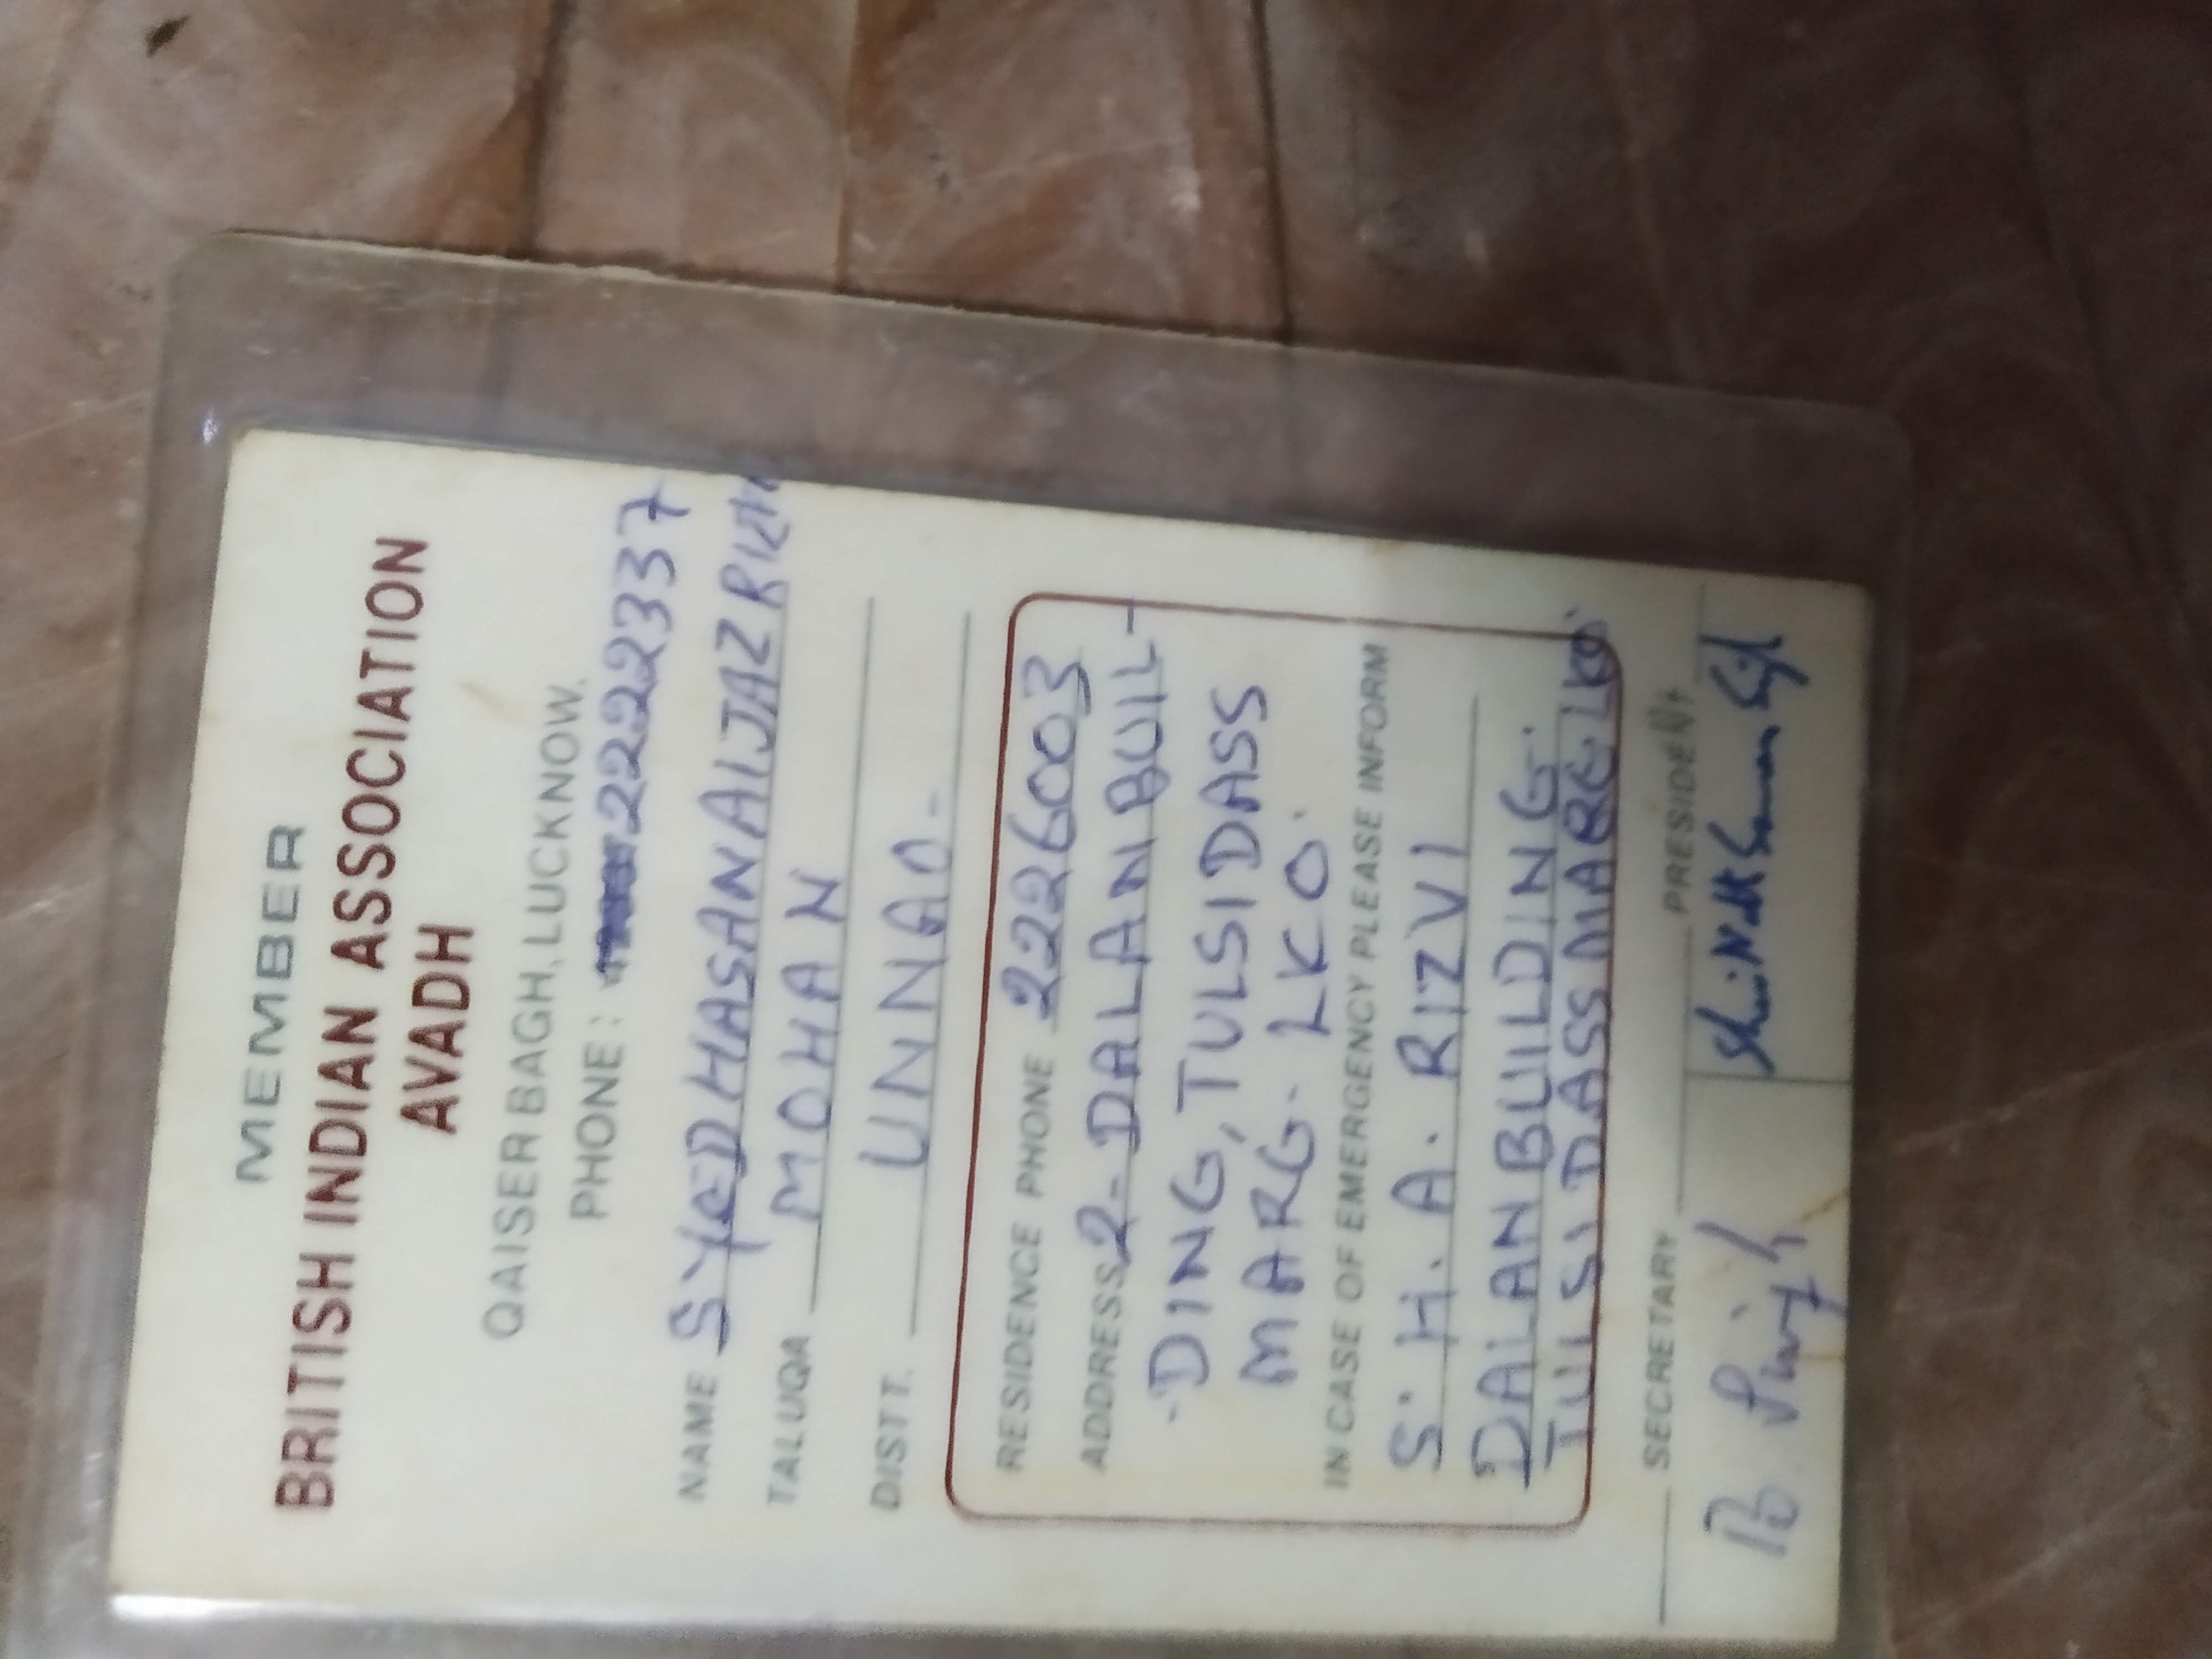 MEMBER
BRITISH INDIAN ASSOCIATION
AVADH
QAISER BAGH, LUCKNOW.
PHONE : 2222337
NAME SYED HASAN AIJAZ RIZVI
TALUQA MOHAN
DISTT. UNNAO-
RESIDENCE PHONE 2226003
ADDRESS 2-DALANBUIL-
-DING, TULSIDASS
MARG. LKO.
IN CASE OF EMERGENCY PLEASE INFORM
S. H. A. RIZVI
DALANBUILDING.
TULSIDASS MARG. LKO.
SECRETARY PRESIDENT
Singh